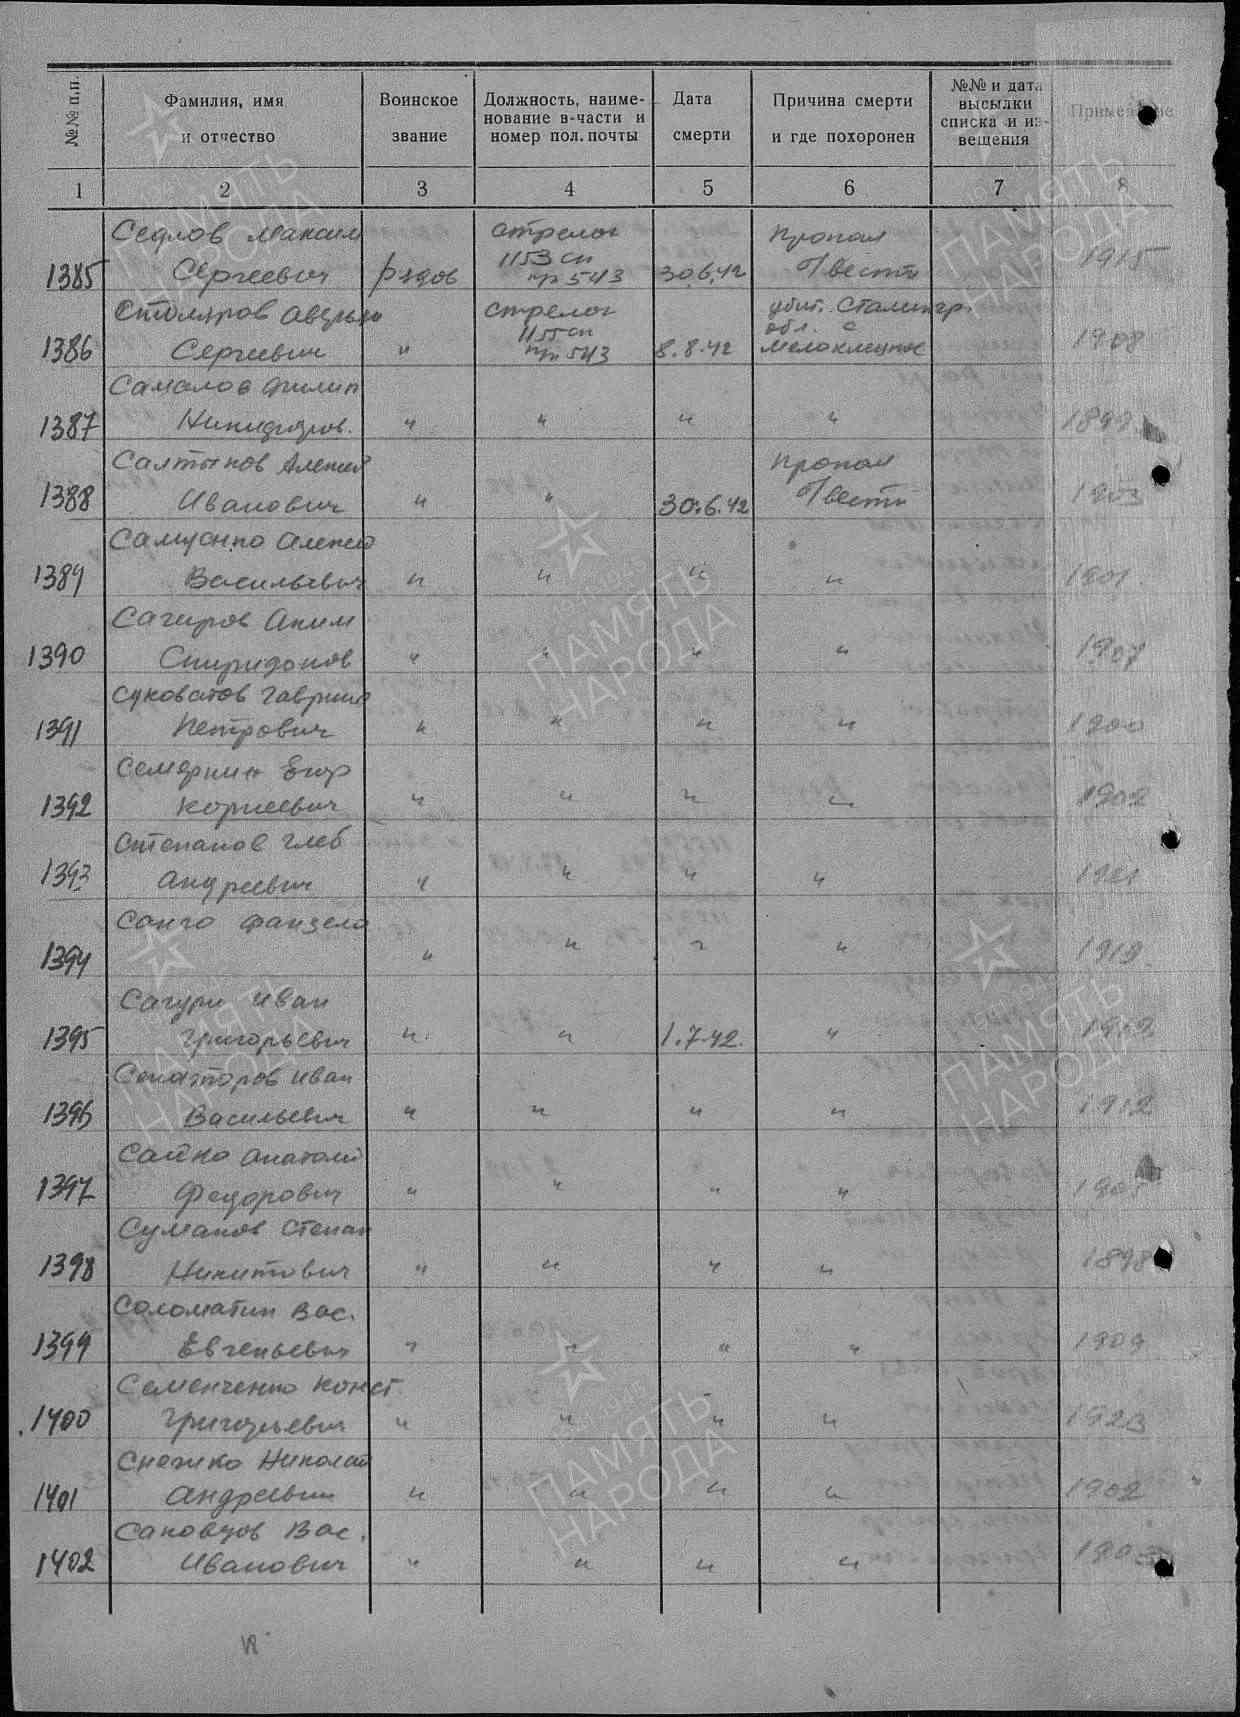 №№ п.п.
Фамилия, имя
и отчество
Воинское
звание
Должность, наиме-
нование в-части и
номер пол. почты
Дата
смерти
Причина смерти
и где похоронен
№№ и дата
высылки
списка и из-
вещения
Примечание
1 2 3 4 5 6 7 8
Седлов Максим стрелок Пропал
1385 Сергеевич рядов 1153 сп б/вести 1915
пп 543 30.6.42
Столяров стрелок убит. Сталингр.
1155 сп обл. с
1386 Сергеевич " пп 543 8.8.42 1908
Самалов Филип
1387 Никифоров. " " " "
Салтынов Алексей Пропал
1388 Иванович " " 30.6.42 б/вести 1903
Алексей
1389 Васильевич " " " " 1901
Сагиров Аким
1390 Спиридонов " " " " 1907
Суковатов Гаврил
1391 Петрович " " " " 1900
Семеркин Егор
1392 Корнеевич " " " " 1902
Степанов Глеб
1393 Андреевич " " " "
Санго
1394 " " " " 1919
Сагури Иван
1395 Григорьевич " " 1.7.42. "
Сенаторов Иван
1396 Васильевич " " " " 1912
Сайко Анатолий
1397 Федорович " " " "
Суманов Степан
1398 Никитович " " " " 1898
Соломатин Вас.
1399 Евгеньевич " " " " 1909
Семенченко Конст.
1400 Григорьевич " " " " 1923
Снежко Николай
1401 Андреевич " " " " 1902
Сановцов Вас.
1402 Иванович " " " "
ПАМЯТЬ
НАРОДА
ПАМЯТЬ
НАРОДА
ПАМЯТЬ
НАРОДА
ПАМЯТЬ
НАРОДА
ПАМЯТЬ
НАРОДА
ПАМЯТЬ
НАРОДА